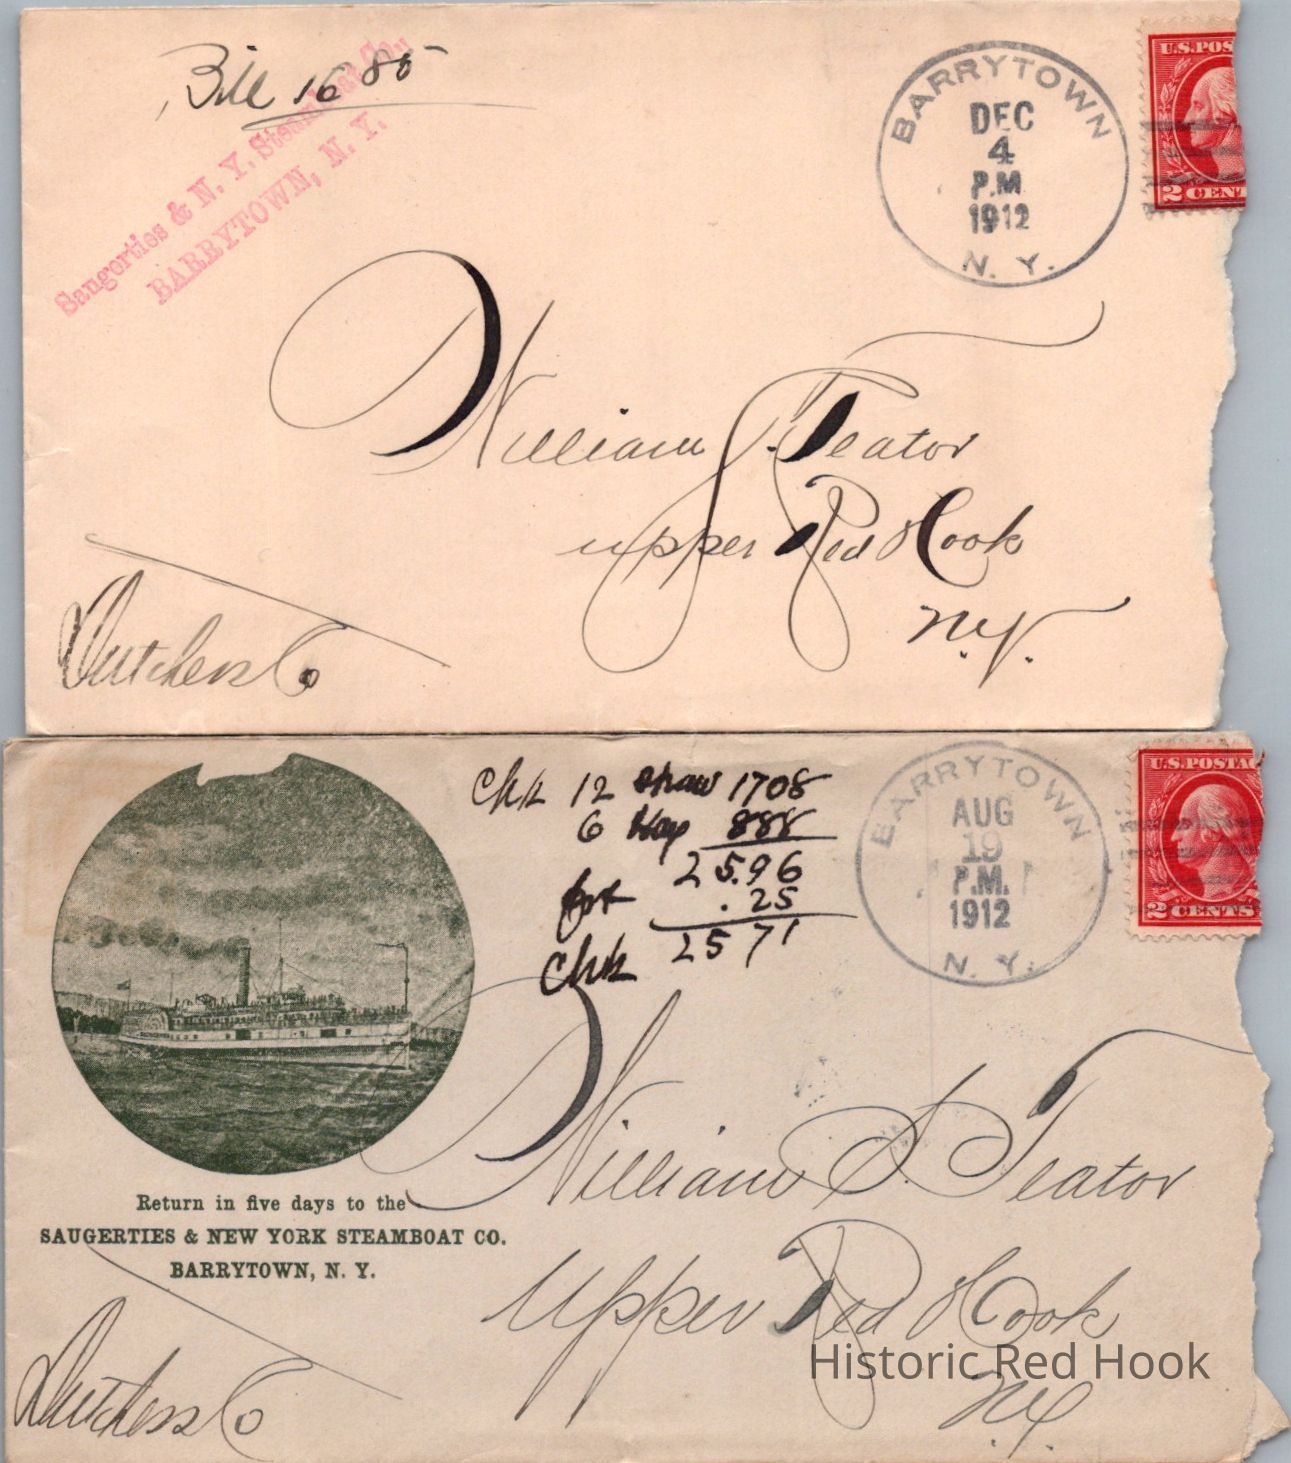 Bill 16 85
Saugerties & N. Y. Steamboat Co.,
BARRYTOWN, N. Y.
BARRYTOWN
DEC
4
P.M
1912
N. Y.
U.S.POS
2 CENT
William S. Teator
upper Red Hook
N.Y.
Dutchess Co
Chk 12 straw 1708
6 Hay 888
25.96
frt .25
Chk 25 71
BARRYTOWN
AUG
19
P.M.
1912
N. Y.
U.S.POSTAG
2 CENTS
Return in five days to the
SAUGERTIES & NEW YORK STEAMBOAT CO.
BARRYTOWN, N. Y.
William S. Teator
Upper Red Hook
N.Y.
Dutchess Co
Historic Red Hook